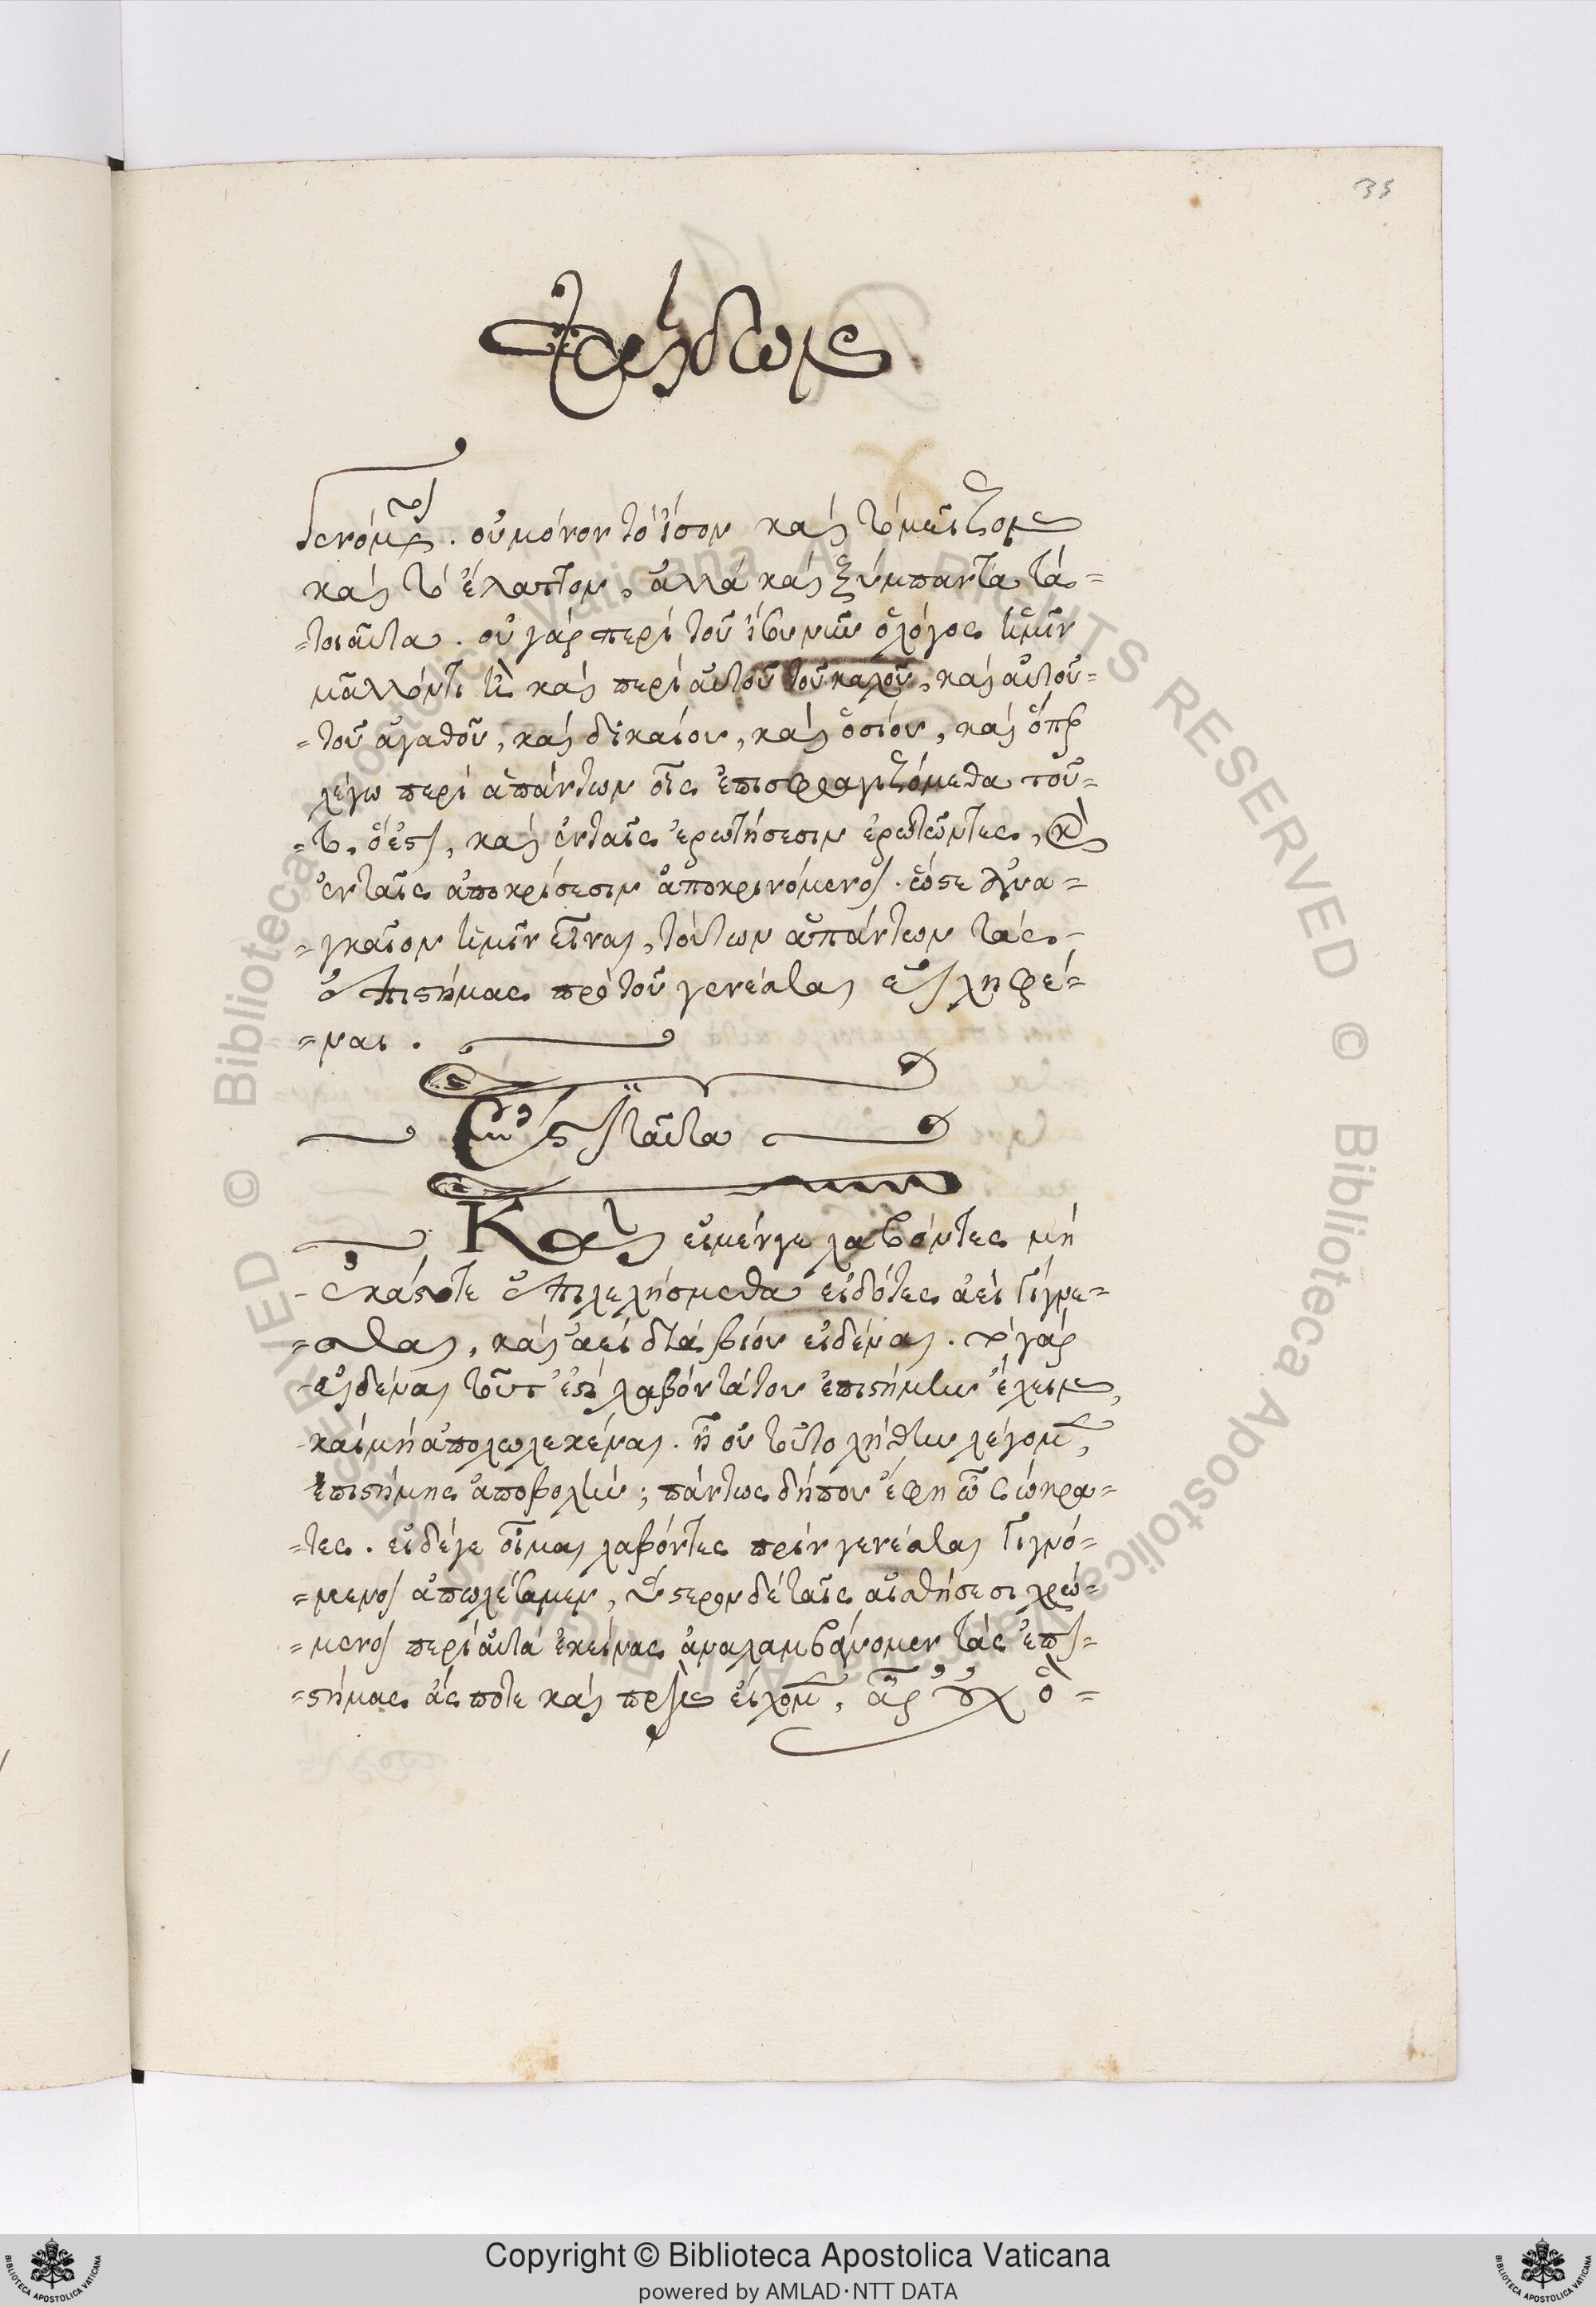 35
Φαίδων
γενόμενοι. οὐ μόνον τὸ ἴσον καὶ τὸ μεῖζον
καὶ τὸ ἔλαττον, ἀλλὰ καὶ ξύμπαντα τὰ=
=τοιαῦτα. οὐ γὰρ περὶ τοῦ ἴσου νῦν ὁ λόγος ἡμῖν
μᾶλλόν τι ἢ καὶ περὶ αὐτοῦ τοῦ καλοῦ, καὶ αὐτοῦ=
=τοῦ ἀγαθοῦ, καὶ δικαίου, καὶ ὁσίου, καὶ ὅπερ
λέγω περὶ ἁπάντων οἷς ἐπισφραγιζόμεθα τοῦ=
=το, ὅ ἐστι, καὶ ἐν ταῖς ἐρωτήσεσιν ἐρωτῶντες, καὶ
ἐν ταῖς ἀποκρίσεσιν ἀποκρινόμενοι. ὥστε ἀνα=
=γκαῖον ἡμῖν εἶναι, τούτων ἁπάντων τὰς
ἐπιστήμας πρὸ τοῦ γενέσθαι εἰληφέ=
=ναι.
ἔστι ταῦτα
Καὶ εἰ μέν γε λαβόντες μὴ
ἑκάστοτε ἐπιλελήσμεθα εἰδότες ἀεὶ γίγνε=
=σθαι, καὶ ἀεὶ διὰ βίου εἰδέναι. τὸ γὰρ
εἰδέναι τοῦτ' ἐστὶ λαβόντα του ἐπιστήμην ἔχειν,
καὶ μὴ ἀπολωλεκέναι. ἢ οὐ τοῦτο λήθην λέγομεν,
ἐπιστήμης ἀποβολήν; πάντως δήπου ἔφη ὦ Σώκρα=
=τες. εἰ δέ γε οἶμαι λαβόντες πρὶν γενέσθαι γιγνό=
=μενοι ἀπωλέσαμεν, ὕστερον δὲ ταῖς αἰσθήσεσι χρώ=
=μενοι περὶ αὐτὰ ἐκείνας ἀναλαμβάνομεν τὰς ἐπι=
=στήμας ἅς ποτε καὶ πρὶν εἴχομεν, ἆρ' οὐχ ὃ=
Copyright © Biblioteca Apostolica Vaticana
powered by AMLAD·NTT DATA